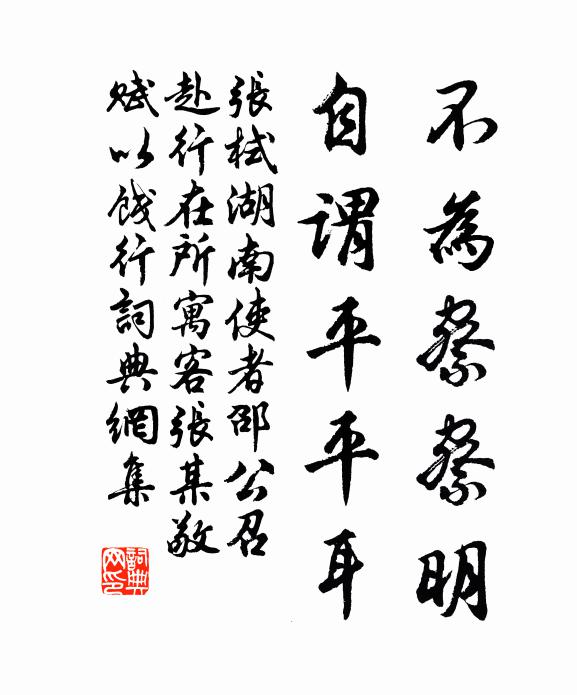 不為察察明
自謂平平耳
張栻湖南使者邵公召
赴行在所寓客張某敬
賦以餞行詞典網集
詞典
网印